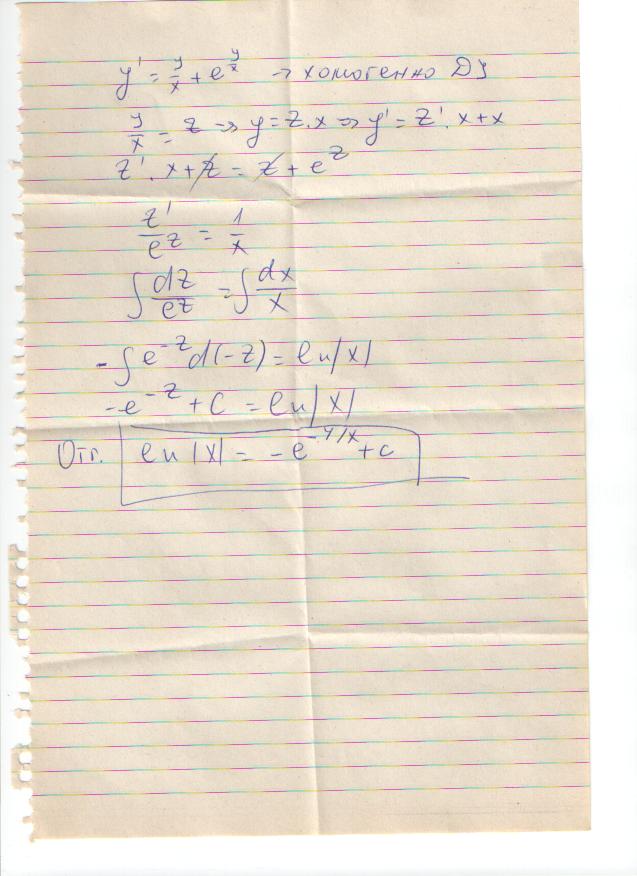 y' = y/x + e^(y/x) → хомогенно ДУ
y/x = z → y = z.x ⇒ y' = z'.x + x
z'.x + z = z + e^z
z'/e^z = 1/x
∫ dz/e^z = ∫ dx/x
-∫ e^(-z) d(-z) = ln|x|
-e^(-z) + C = ln|x|
Отг. ln|x| = -e^(-y/x) + C